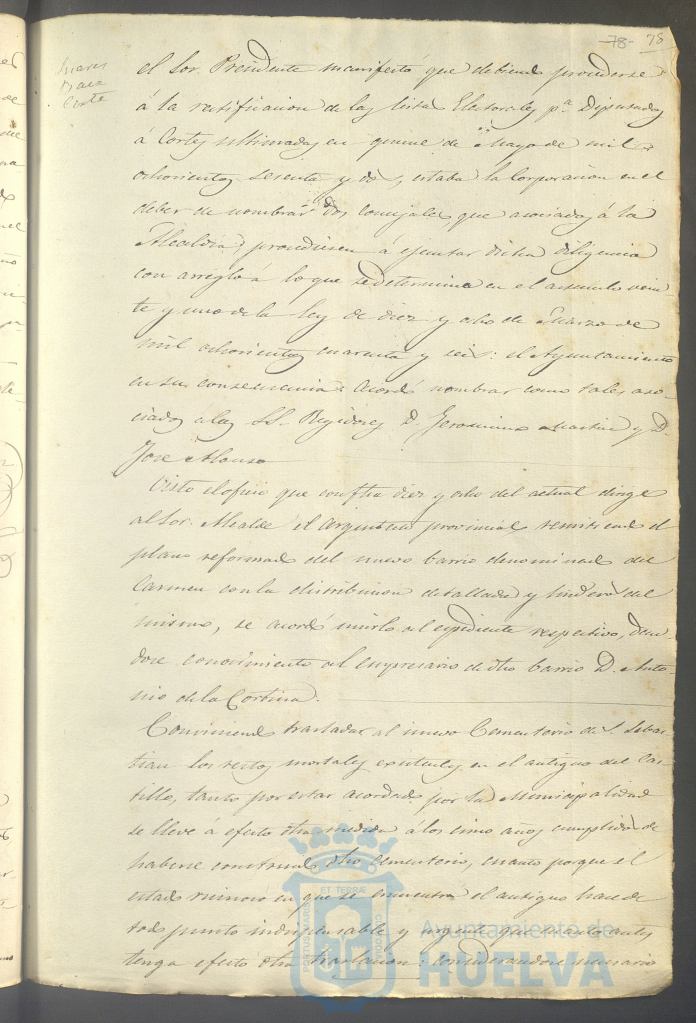 -78- 78
Suarez
Baez
Corte
el Sor. Presidente manifestó que debiendo procederse
á la rectificacion de las listas Electorales pª Diputados
á Cortes ultimadas en quince de Mayo de mil
ochocientos sesenta y dos, estaba la Corporacion en el
deber de nombrar dos concejales que asociados á la
Alcaldia, procediesen á ejecutar dicha diligencia
con arreglo á lo que se determina en el articulo vein
te y uno de la ley de diez y ocho de Marzo de
mil ochocientos cuarenta y seis: el Ayuntamiento
en su consecuencia acordó nombrar como tales aso-
ciados a los SS. Regidores D. Jeronimo Martin y D.
Jose Alonso
Visto el oficio que con fha diez y ocho del actual dirige
al Sor. Alcalde el Arquitecto provincial remitiendo el
plano reformado del nuevo barrio denominado del
Carmen con la distribucion detallada y linderos del
mismo, se acordó unirlo al espediente respectivo, dan
dose conocimiento al empresario de dho barrio D. Anto-
nio de la Cortina.
Conviniendo trasladar al nuevo Cementerio de S. Sebas
tian los restos mortales existentes en el antiguo del Cas
tillo, tanto por estar acordado por la Municipalidad
se lleve á efecto dha medida á los cinco años cumplidos de
haberse construido dho cementerio, cuanto porque el
estado ruinoso en que se encuentra el antiguo hace de
todo punto indispensable y urgente que cuanto antes
tenga efecto dha traslacion: considerandose necesario
PORTUS MARIS
ET TERRÆ
CUSTODIA
Ayuntamiento de
HUELVA